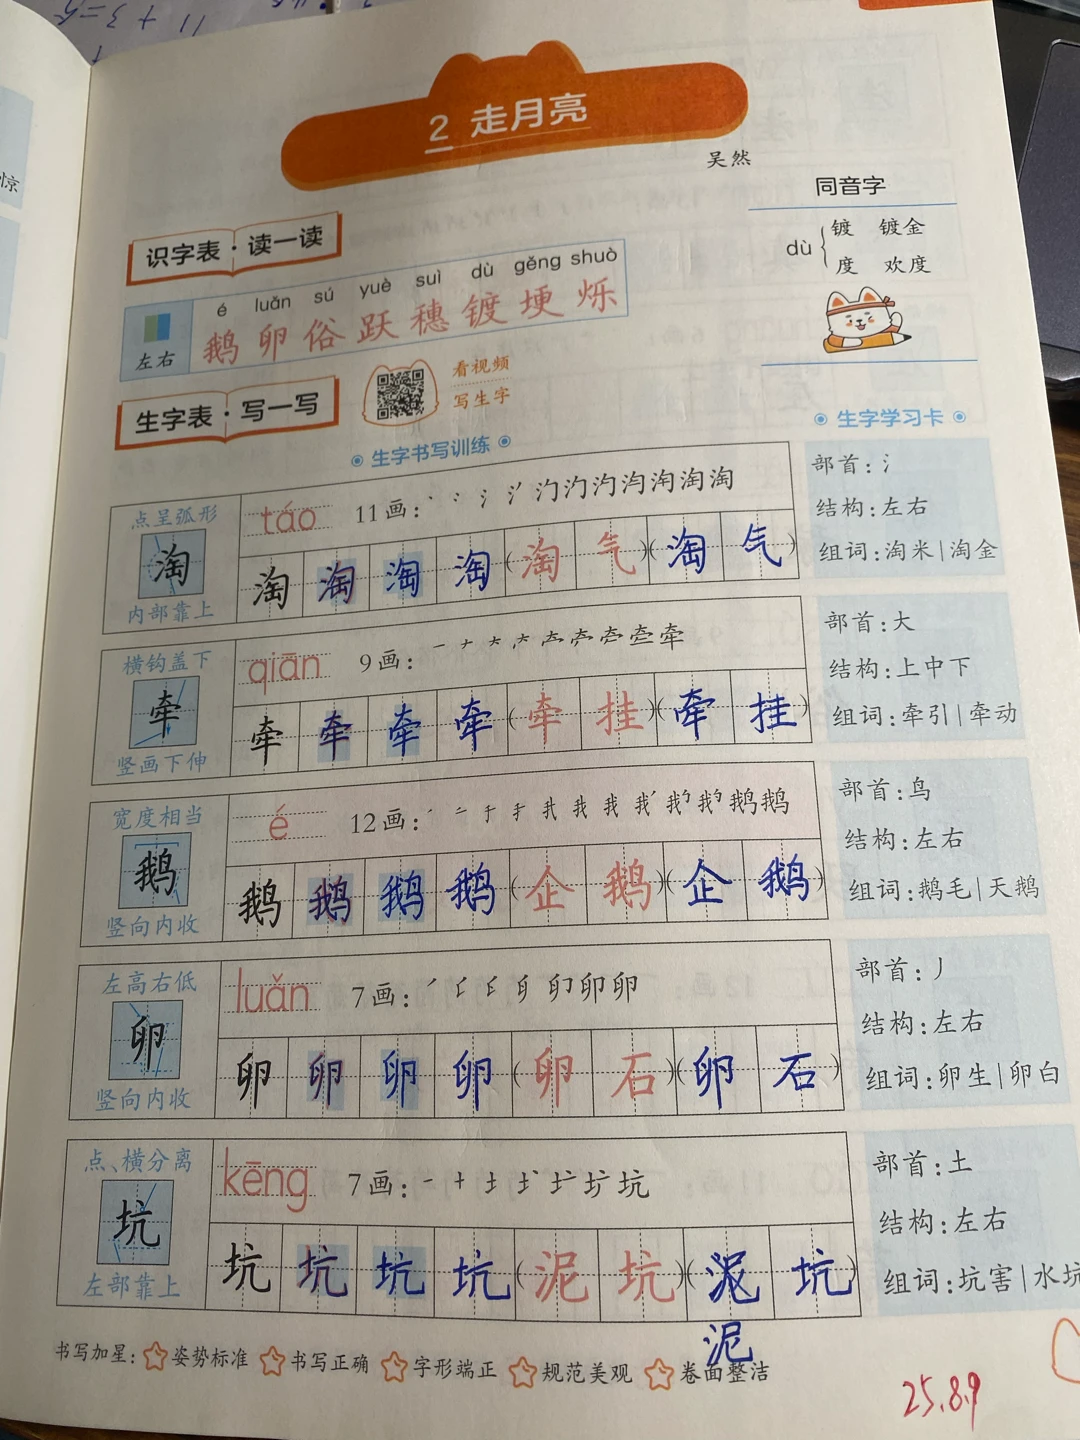 11+3=
惊
2 走月亮
吴然
同音字
dù
镀 镀金
度 欢度
识字表·读一读
é luǎn sú yuè suì dù gěng shuò
左右
鹅 卵 俗 跃 穗 镀 埂 烁
生字表·写一写
看视频
写生字
生字书写训练
生字学习卡
点呈弧形
淘
内部靠上
táo 11画: 丶 冫 氵 氵 汋 汋 汋 淘 淘 淘 淘
淘 淘 淘 淘 (淘 气) (淘 气)
部首:氵
结构:左右
组词:淘米|淘金
横钩盖下
牵
竖画下伸
qiān 9画: 一 ナ 大 牵
牵 牵 牵 牵 (牵 挂) (牵 挂)
部首:大
结构:上中下
组词:牵引|牵动
宽度相当
鹅
竖向内收
é 12画: ノ 二 于 手 我 我 我 鹅 鹅
鹅 鹅 鹅 鹅 (企 鹅) (企 鹅)
部首:鸟
结构:左右
组词:鹅毛|天鹅
左高右低
卵
竖向内收
luǎn 7画: 卵 卵
卵 卵 卵 卵 (卵 石) (卵 石)
部首:丿
结构:左右
组词:卵生|卵白
点、横分离
坑
左部靠上
kēng 7画: 一 十 土 坑
坑 坑 坑 坑 (泥 坑) (泥 坑)
泥
部首:土
结构:左右
组词:坑害|水坑
书写加星: 姿势标准 书写正确 字形端正 规范美观 卷面整洁
25.8.9